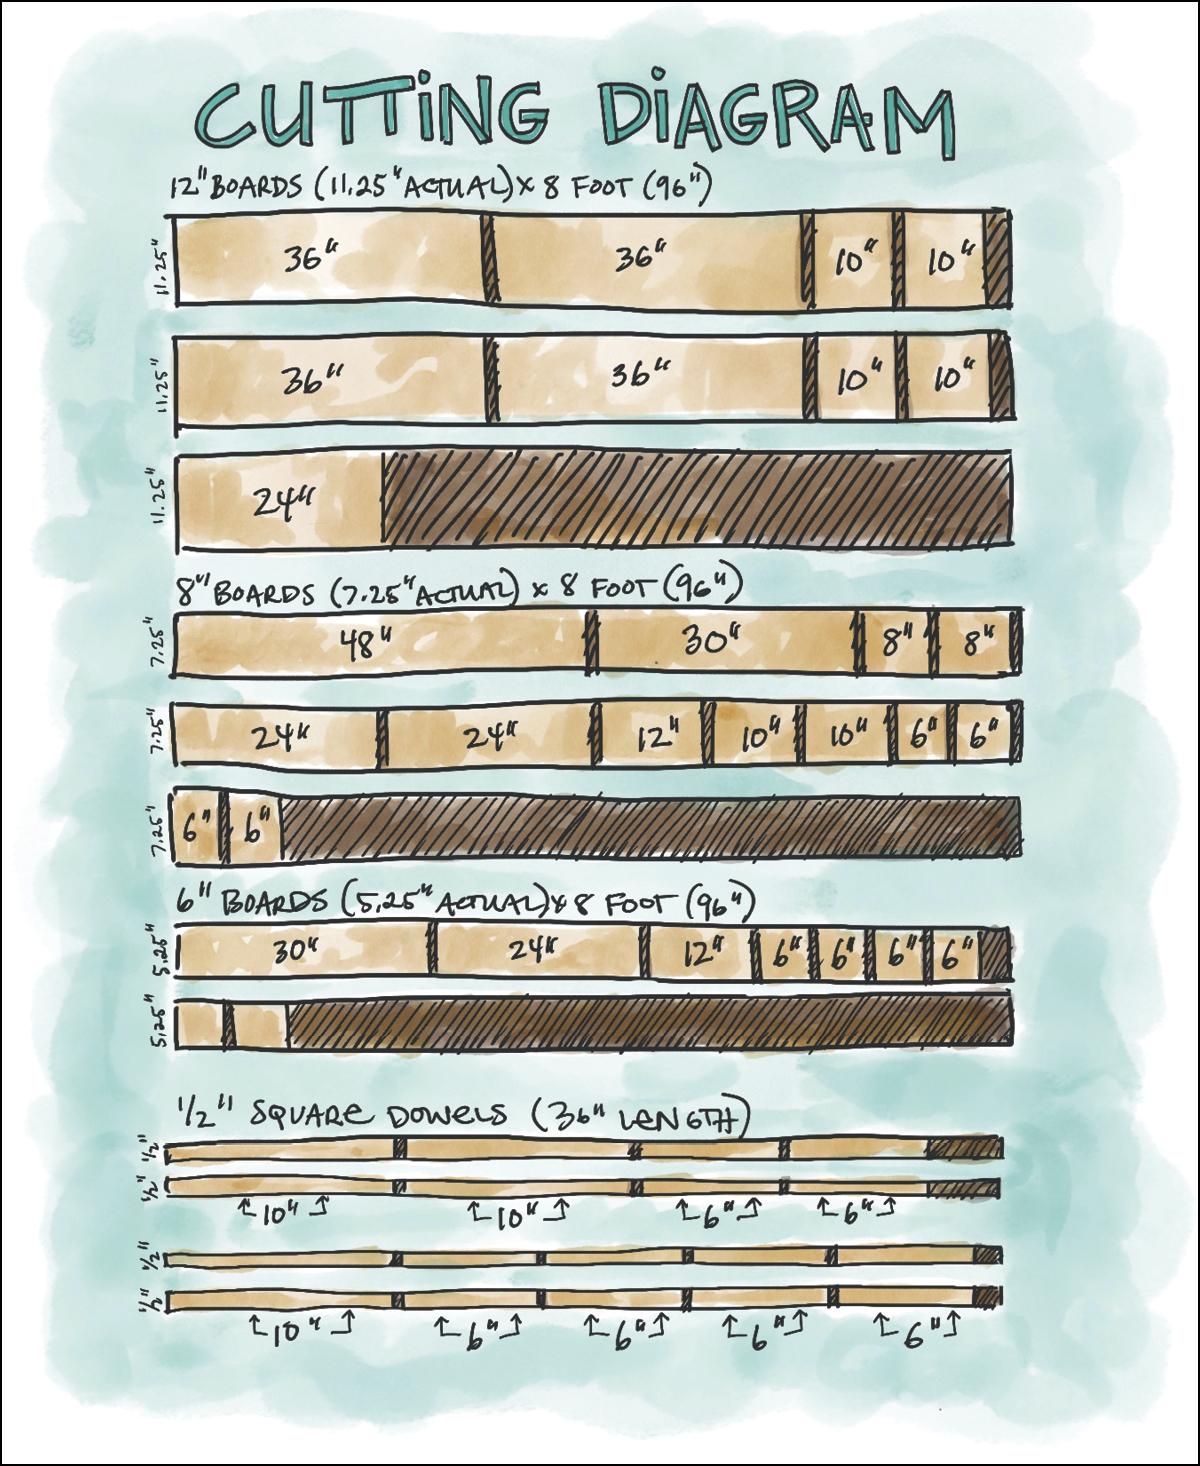 CUTTiNG DiAGRAM
12" BOARDS (11.25" ACTUAL) x 8 FOOT (96")
11.25" 36" 36" 10" 10"
11.25" 36" 36" 10" 10"
11.25" 24"
8" BOARDS (7.25" ACTUAL) x 8 FOOT (96")
7.25" 48" 30" 8" 8"
7.25" 24" 24" 12" 10" 10" 6" 6"
7.25" 6" 6"
6" BOARDS (5.25" ACTUAL) x 8 FOOT (96")
5.25" 30" 24" 12" 6" 6" 6" 6"
5.25"
1/2" SQUARE DOWELS (36" LENGTH)
1/2"
1/2"
10" 10" 6" 6"
1/2"
1/2"
10" 6" 6" 6" 6"